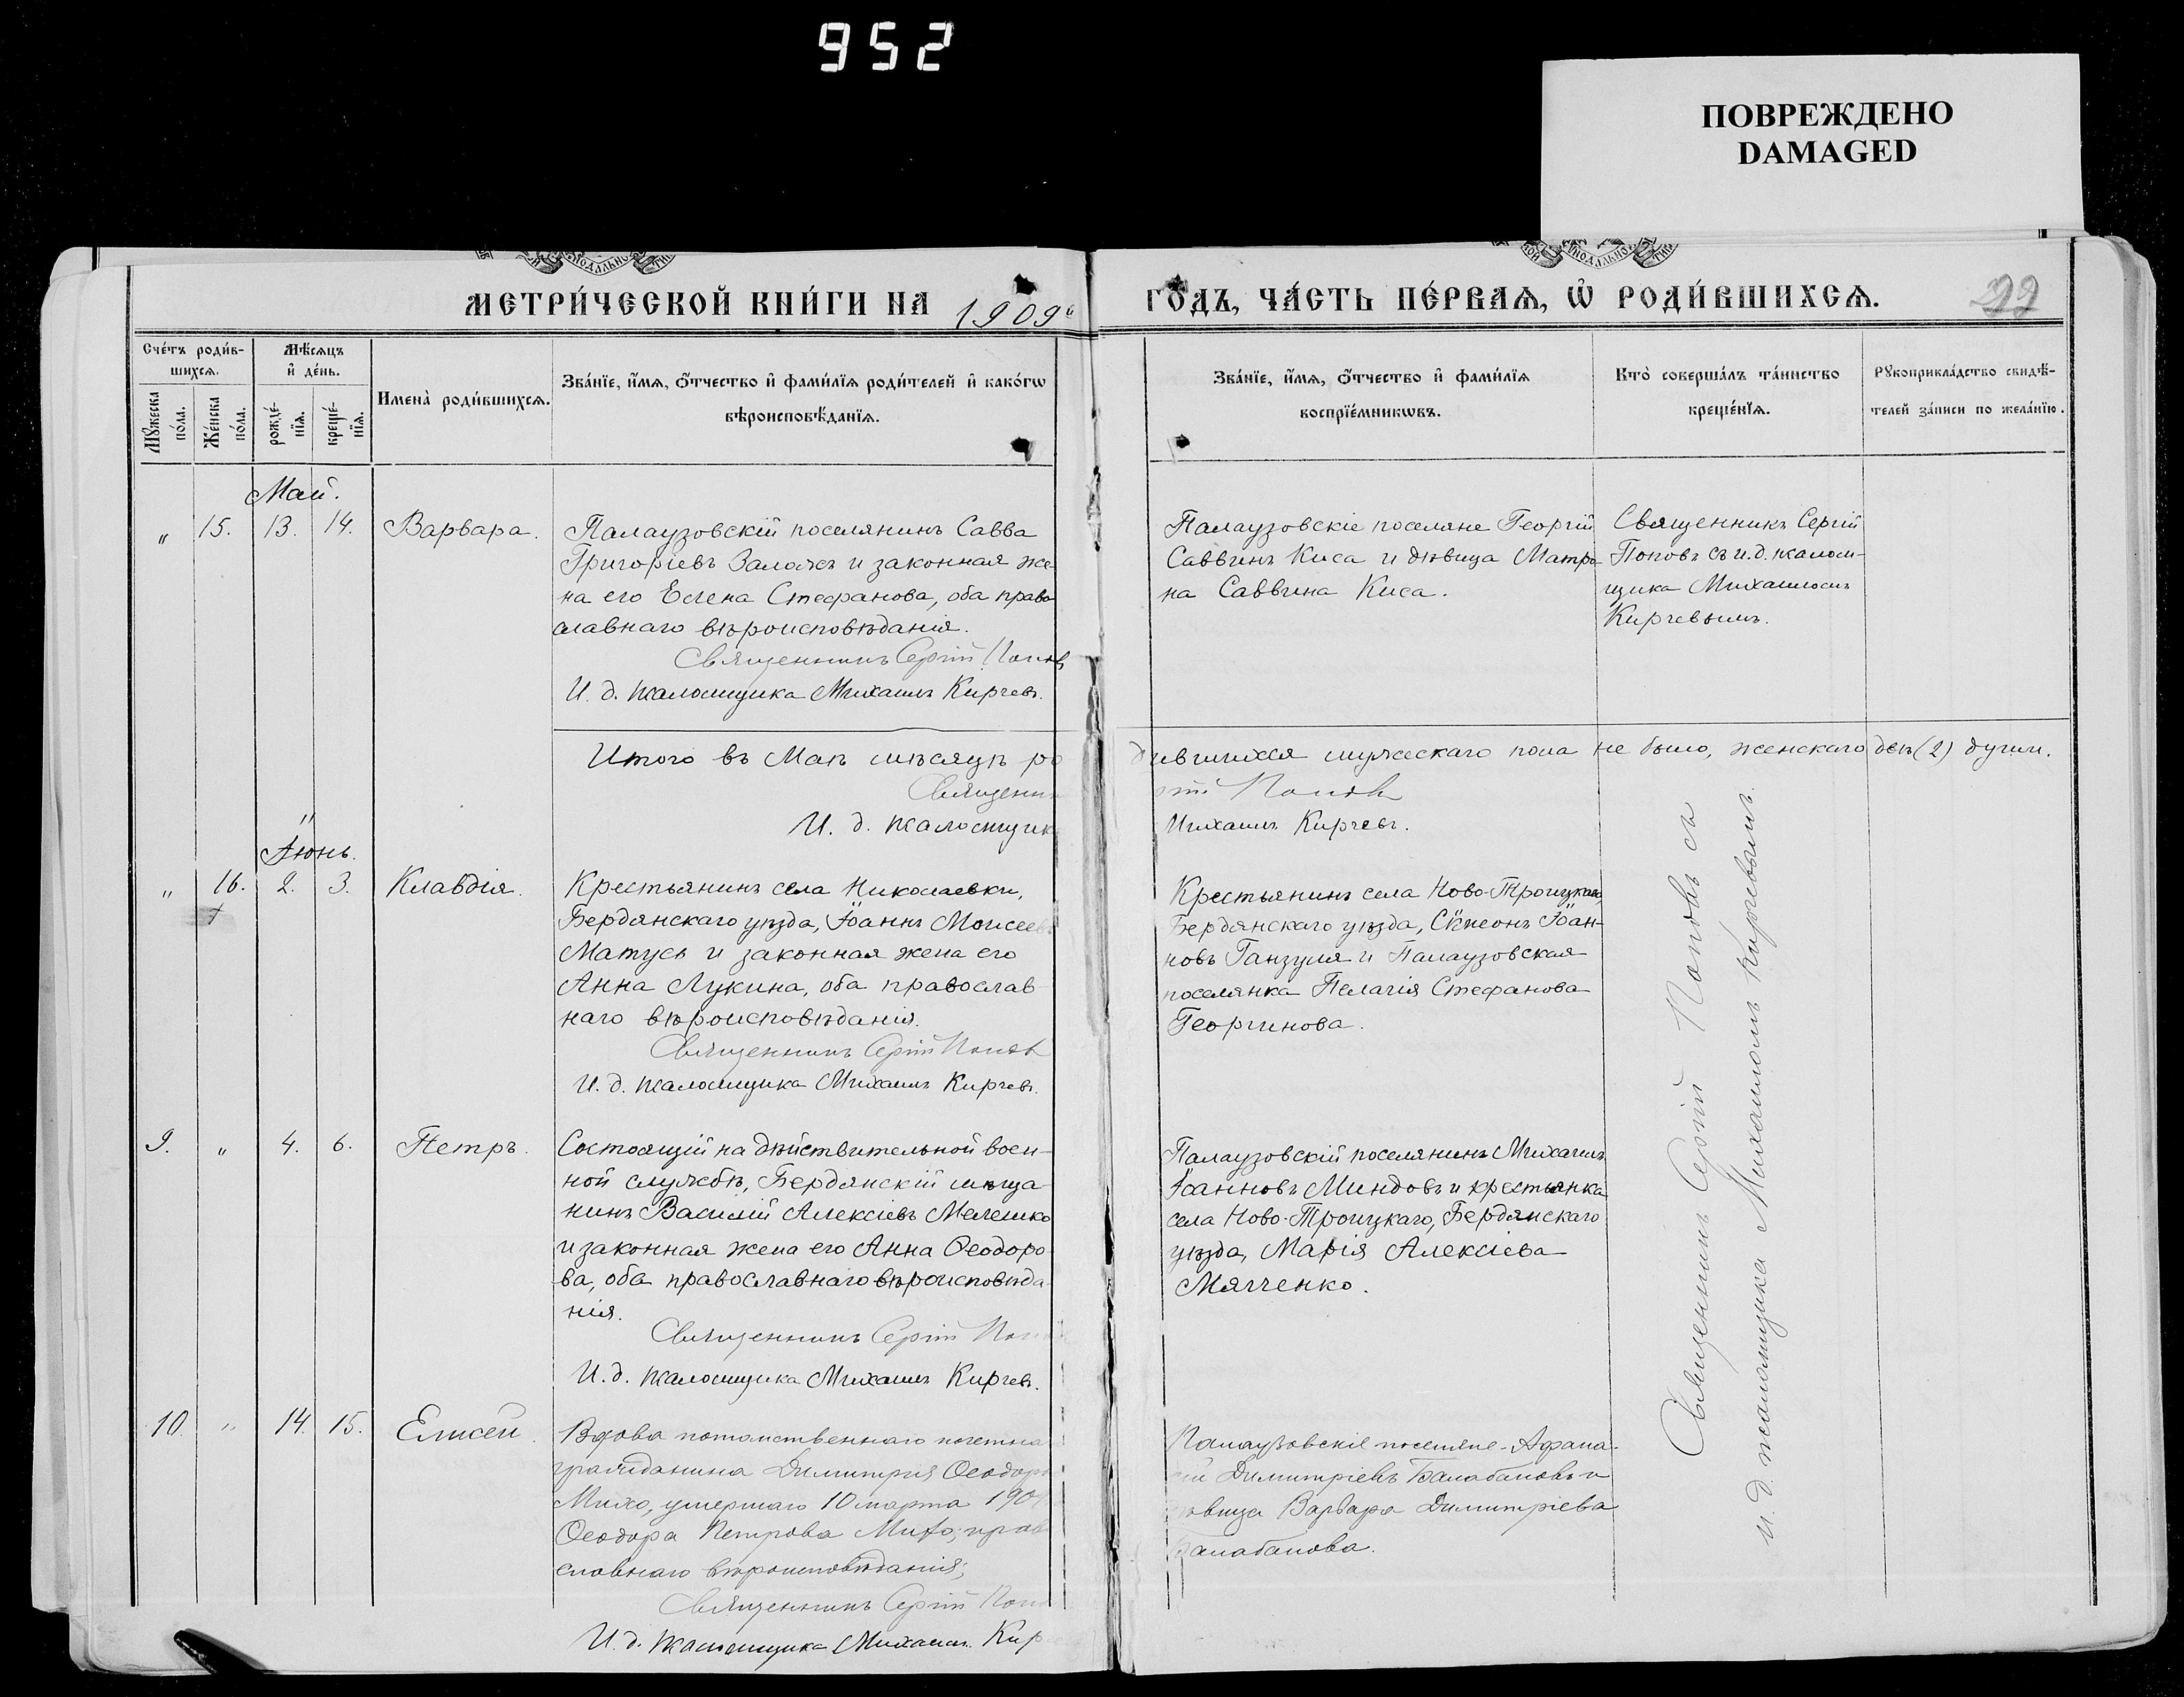 952
ПОВРЕЖДЕНО
DAMAGED
МЕТРИ́ЧЕСКОЙ КНИ́ГИ НА 1909й ГО́ДЪ, ЧА́СТЬ ПЕ́РВАѦ, Ѡ҆ РОДИ́ВШИХСѦ.
Сче́тъ роди́в-
шихсѧ.
Мꙋ́жеска по́ла.
Же́нска по́ла.
Мѣ́сѧцъ
и҆ де́нь.
рожде́-
нїѧ.
креще́-
нїѧ.
И҆мена̀ роди́вшихсѧ.
Зва́нїе, и҆́мѧ, ѻ҆́тчество и҆ фами́лїѧ роди́телей и҆ како́гѡ
вѣроисповѣ́данїѧ.
Зва́нїе, и҆́мѧ, ѻ҆́тчество и҆ фами́лїѧ
воспрїе́мникѡвъ.
Кто̀ соверша́лъ та́инство
креще́нїѧ.
Рꙋкоприкла́дство свидѣ́-
телей за́писи по жела́нїю.
Май.
" 15. 13. 14. Варвара.
Палаузовскій поселянинъ Савва
Григоріевъ Заложъ и законная же-
на его Елена Стефанова, оба право-
славнаго вѣроисповѣданія.
Священникъ Сергій Поповъ
И. д. псаломщика Михаилъ Кирчевъ.
Палаузовскіе поселяне Георгій
Саввинъ Киса и дѣвица Матро-
на Саввина Киса.
Священникъ Сергій
Поповъ съ и. д. псалом-
щика Михаиломъ
Кирчевымъ.
Итого въ Маѣ мѣсяцѣ родившихся мужескаго пола не было, женскаго двѣ (2) души.
Священникъ Сергій Поповъ
И. д. псаломщика Михаилъ Кирчевъ.
Іюнь.
" 16. 2. 3. Клавдія.
Крестьянинъ села Николаевки,
Бердянскаго уѣзда, Іоаннъ Моисеевъ
Матусь и законная жена его
Анна Лукина, оба православ-
наго вѣроисповѣданія.
Священникъ Сергій Поповъ
И. д. псаломщика Михаилъ Кирчевъ.
Крестьянинъ села Ново-Троицкаго,
Бердянскаго уѣзда, Сѵмеонъ Іоан-
новъ Ганзуля и Палаузовская
поселянка Пелагія Стефанова
Георгинова.
Священникъ Сергій Поповъ съ
и. д. псаломщика Михаиломъ Кирчевымъ.
9. " 4. 6. Петръ.
Состоящій на дѣйствительной воен-
ной службѣ, Бердянскій мѣща-
нинъ Василій Алексіевъ Мелешко
и законная жена его Анна Ѳеодоро-
ва, оба православнаго вѣроисповѣда-
нія.
Священникъ Сергій Попов
И. д. псаломщика Михаилъ Кирчевъ.
Палаузовскій поселянинъ Михаилъ
Іоанновъ Миндовъ и крестьянка
села Ново-Троицкаго, Бердянскаго
уѣзда, Марія Алексіева
Мягченко.
10. " 14. 15. Елисей.
Вдова потомственнаго почетна
гражданина Димитрія Ѳеодоро
Михо, умершаго 10 марта 190
Ѳеодора Петрова Михо, право
славнаго вѣроисповѣданія;
Священникъ Сергій Попо
И. д. псаломщика Михаилъ Кир
Палаузовскіе поселяне Афана-
сій Димитріевъ Балабановъ и
дѣвица Варвара Димитріева
Балабанова.